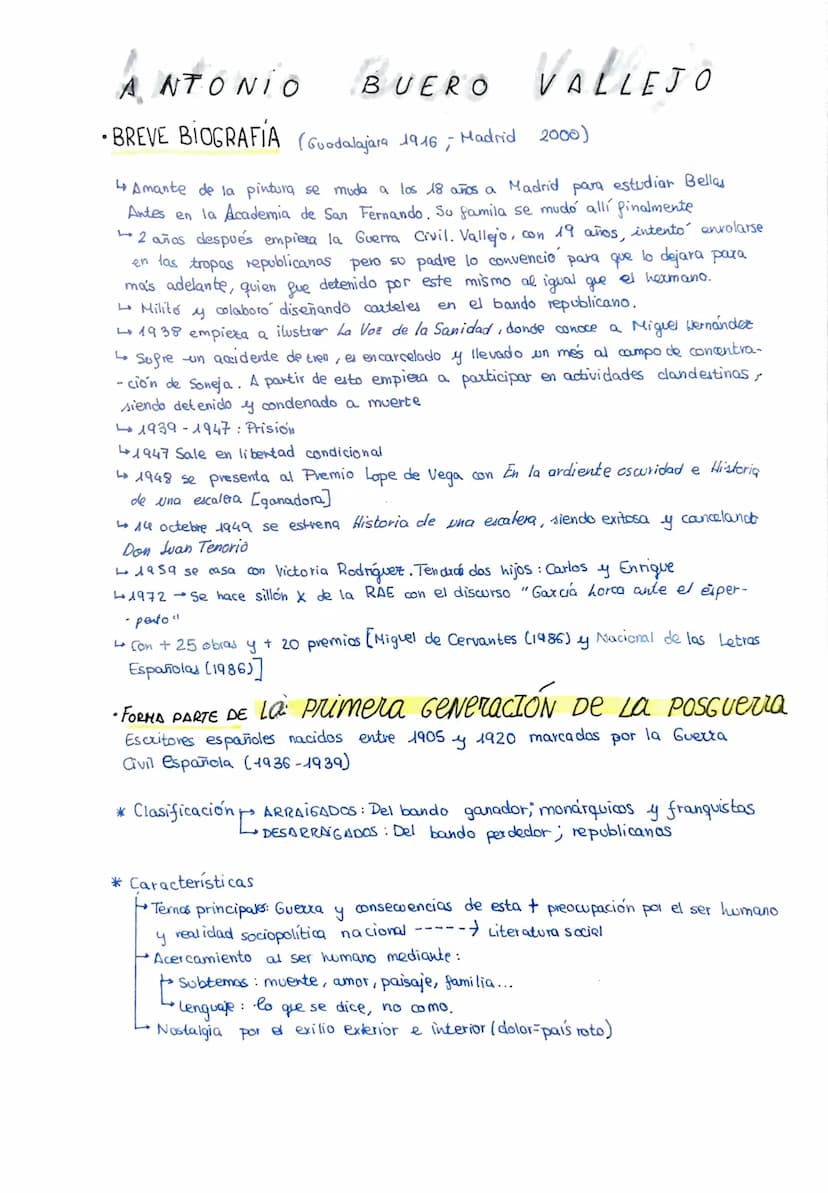 ANTONIO BUERO VALLEJO
• BREVE BIOGRAFÍA (Guadalajara 1916 ; Madrid 2000)
↳ Amante de la pintura se muda a los 18 años a Madrid para estudiar Bellas
Artes en la Academia de San Fernando. Su famila se mudó allí finalmente
↳ 2 años después empieza la Guerra Civil. Vallejo, con 19 años, intentó enrolarse
en las tropas republicanas pero su padre lo convenció para que lo dejara para
más adelante, quien fue detenido por este mismo al igual que el hermano.
↳ Militó y colaboró diseñando carteles en el bando republicano.
↳ 1938 empieza a ilustrar La Voz de la Sanidad, donde conoce a Miguel Hernández
↳ Sufre un accidente de tren, es encarcelado y llevado un més al campo de concentra-
-ción de Soneja. A partir de esto empieza a participar en actividades clandestinas,
siendo detenido y condenado a muerte
↳ 1939 - 1947 : Prisión
↳ 1947 Sale en libertad condicional
↳ 1948 se presenta al Premio Lope de Vega con En la ardiente oscuridad e Historia
de una escalera [ganadora]
↳ 14 octubre 1949 se estrena Historia de una escalera, siendo exitosa y cancelando
Don Juan Tenorio
↳ 1959 se casa con Victoria Rodríguez. Tendrá dos hijos : Carlos y Enrique
↳ 1972 → Se hace sillón X de la RAE con el discurso "García Lorca ante el esper-
-pento"
↳ Con + 25 obras y + 20 premios [Miguel de Cervantes (1986) y Nacional de las Letras
Españolas (1986)]
• FORMA PARTE DE La Primera GENERACIÓN DE LA POSGUERRA
Escritores españoles nacidos entre 1905 y 1920 marcados por la Guerra
Civil Española (1936-1939)
* Clasificación → ARRAIGADOS : Del bando ganador; monárquicos y franquistas
↳ DESARRAIGADOS : Del bando perdedor ; republicanos
* Características
→ Temas principales: Guerra y consecuencias de esta + preocupación por el ser humano
y realidad sociopolítica nacional -----→ Literatura social
→ Acercamiento al ser humano mediante :
→ Subtemas : muerte, amor, paisaje, familia...
↳ Lenguaje : lo que se dice, no como.
↳ Nostalgia por el exilio exterior e interior (dolor=país roto)